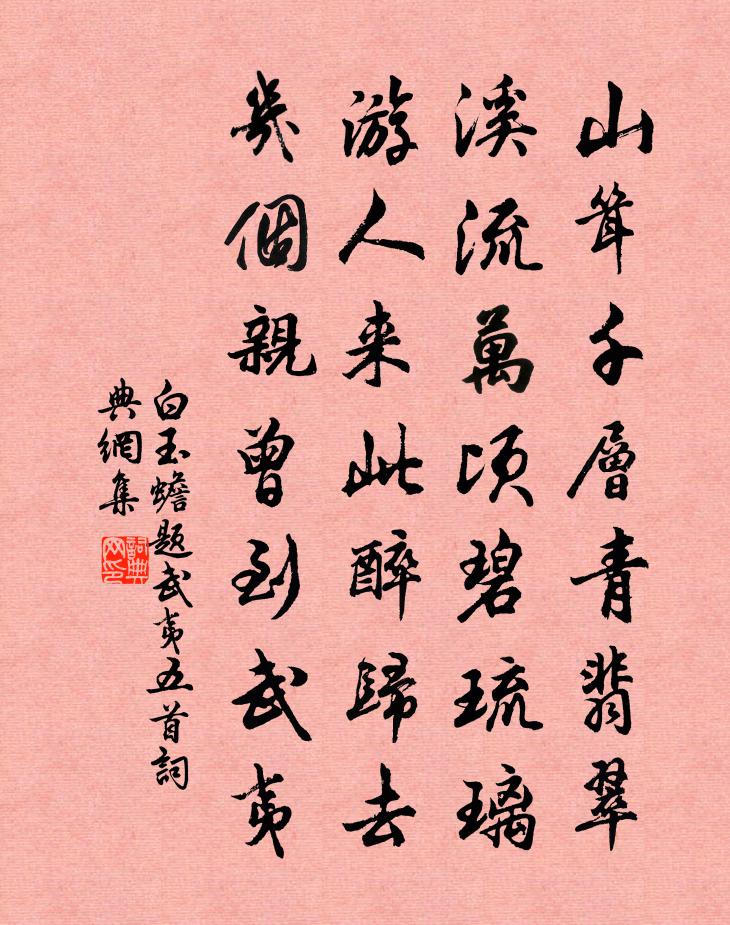 山聳千層青翡翠
溪流萬頃碧琉璃
游人来此醉歸去
幾個親曾到武夷
白玉蟾題武夷五首詞
典網集
詞典網印